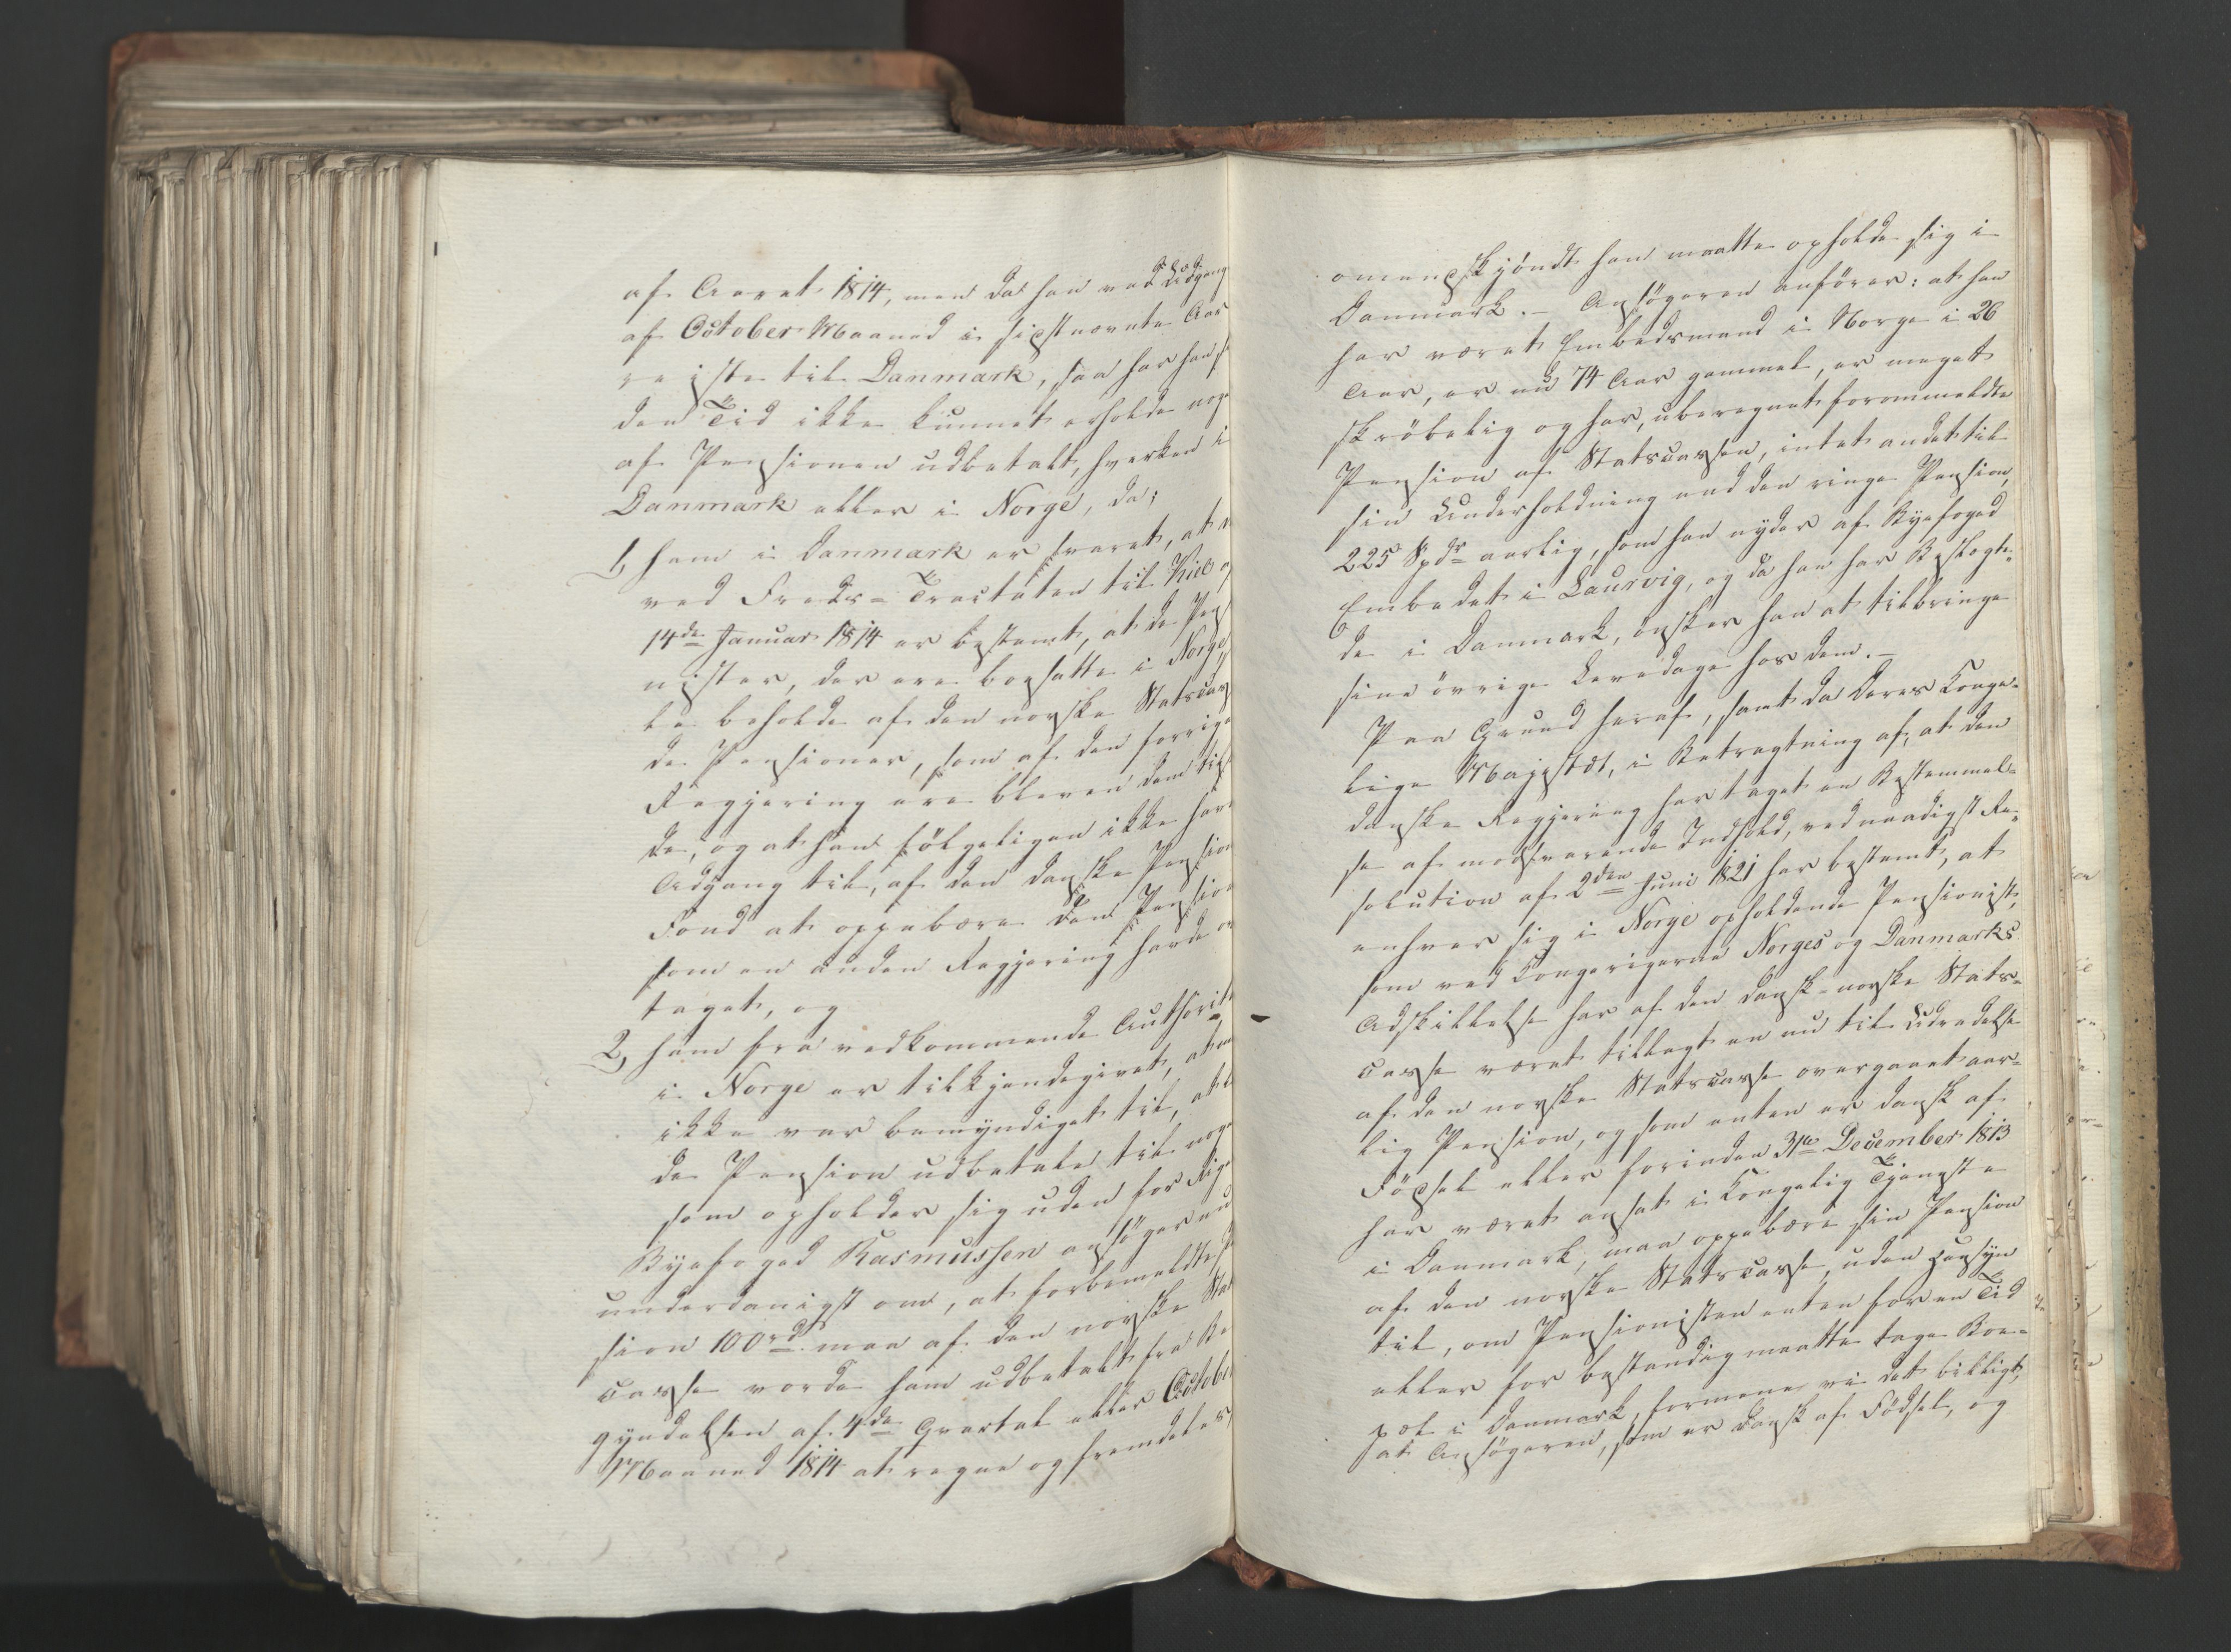 af Aaret 1814, men da han ved Udgang
af October Maaned i sidstnævnte Aar
reiste til Danmark, saa har han si
den Tid ikke kunnet erholde noge
af Pensionen udbetalt, hverken i
Danmark eller i Norge, da;
1, ham i Danmark er svaret, at
ved Freds-Tractaten til Kiel
14de Januar 1814 er bestemt, at de Pen
nister, der ere bosatte i Norge,
le beholde af den norske Statscas
de Pensioner, som af den forrige
Regjering ere bleven dem til
de, og at han følgeligen ikke har
Adgang til, af den danske Pension
Fond at oppebære den Pension
som en anden Regjering havde
taget, og
2, ham fra vedkommende Authorit
i Norge er tilkjendegivet, at
ikke var bemyndiget til, at
de Pension udbetale til noge
som opholder sig uden for Rig
Byefoged Rasmussen ansøger nu
underdanigst om, at forbemeldte
sion 100 rd. maa af den norske Stat
casse vorde ham udbetalt fra Be
gyndelsen af 4de Qvartal eller Octobe
Maaned 1814 at regne og fremdeles,
omendskjøndt han maatte opholde sig i
Danmark. - Ansøgeren anfører: at han
har været Embedsmand i Norge i 26
Aar, er nu 74 Aar gammel, er meget
skrøbelig og har, uberegnet forommeldte
Pension af Statscassen, intet andet til
sin Underholdning end den ringe Pension,
225 Spdr aarlig, som han nyder af Byefoged
Embedet i Laurvig, og da han har Beslægte-
de i Danmark, ønsker han at tilbringe
sine øvrige Levedage hos dem. -
Paa Grund heraf, samt da Deres Konge-
lige Majestæt, i Betragtning af, at den
danske Regjering har taget en Bestemmel-
se af modsvarende Indhold, ved naadigst Re-
solution af 2den Juni 1821 har bestemt, at
enhver sig i Norge opholdende Pensionist,
som ved Kongerigerne Norges og Danmarks
Adskillelse har af den dansk-norske Stats-
casse været tillagt en nu til Udredelse
af den norske Statscasse overgaaet aar-
lig Pension, og som enten er dansk af
Fødsel eller forinden 31te December 1813
har været ansat i Kongelig Tjeneste
i Danmark, maa oppebære sin Pension
af den norske Statscasse, uden Hensyn
til, om Pensionisten enten for en Tid
eller for bestandig maatte tage Boe-
pæl i Danmark, formene vi det billigt,
at Ansøgeren, som er dansk af Fødsel, og